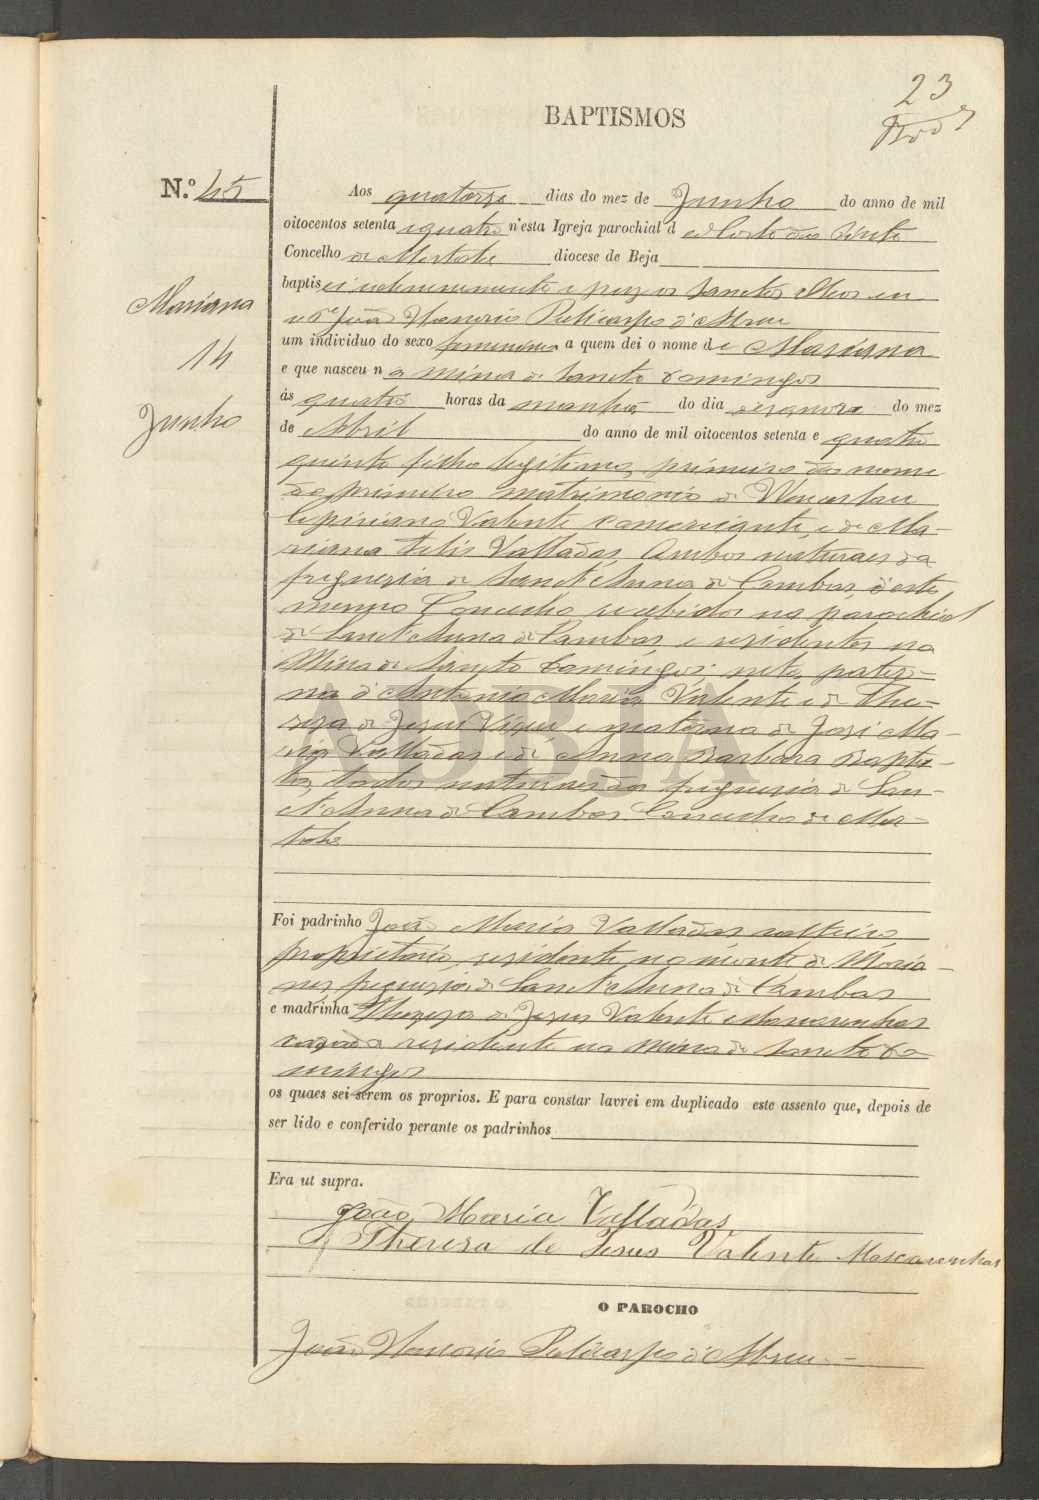 23
BAPTISMOS
N.º 45
Aos quatorze dias do mez de Junho do anno de mil
oitocentos setenta e quatro n'esta Igreja parochial d e Corte do Pinto
Concelho de Mertola diocese de Beja
baptis ei solemnemente e puz os Sanctos Oleos eu
o Pe João Honorio Policarpo d'Abreu
um individuo do sexo femenino a quem dei o nome d e Marianna
e que nasceu n a Mina de Sancto Domingos
ás quatro horas da manhã do dia dezanove do mez
de Abril do anno de mil oitocentos setenta e quatro
quinto filho legitimo, primeiro do nome
do primeiro matrimonio de Wenceslau
Cypriano Valente comerciante, e de Ma-
rianna Felis Valladas, Ambos naturaes da
freguezia de Sanct'Anna de Cambas, d'este
mesmo Concelho, recebidos na parochial
de Sanct'Anna de Cambas, e residentes na
Mina de Sancto Domingos: neta pater-
na d'Antonio Maria Valente e de The-
reza de Jesus e materna de José Ma-
ria Valladas e de Anna Barbara Baptis-
ta, todos naturaes da freguezia de San-
ct'Anna de Cambas Concelho de Mer-
tola
Marianna
14
Junho
Foi padrinho João Maria Valladas solteiro
proprietario, residente no monte de
freguezia de Sanct'Anna de Cambas
e madrinha Thereza de Jesus Valente Mascarenhas
casada residente na Mina de Sancto Do-
mingos
os quaes sei serem os proprios. E para constar lavrei em duplicado este assento que, depois de
ser lido e conferido perante os padrinhos
Era ut supra.
João Maria Valladas
Thereza de Jesus Valente Mascarenhas
O PAROCHO
João Honorio Policarpo d'Abreu
ADBJA